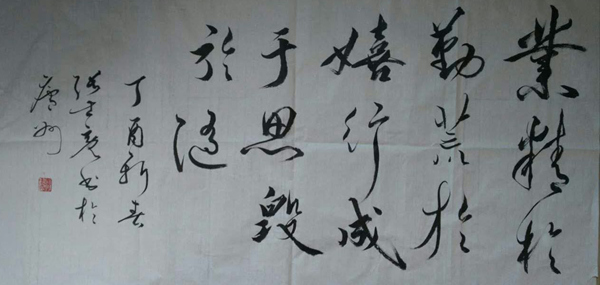 業精於
勤荒於
嬉行成
于思毀
於随
丁酉新春
书於
廬州